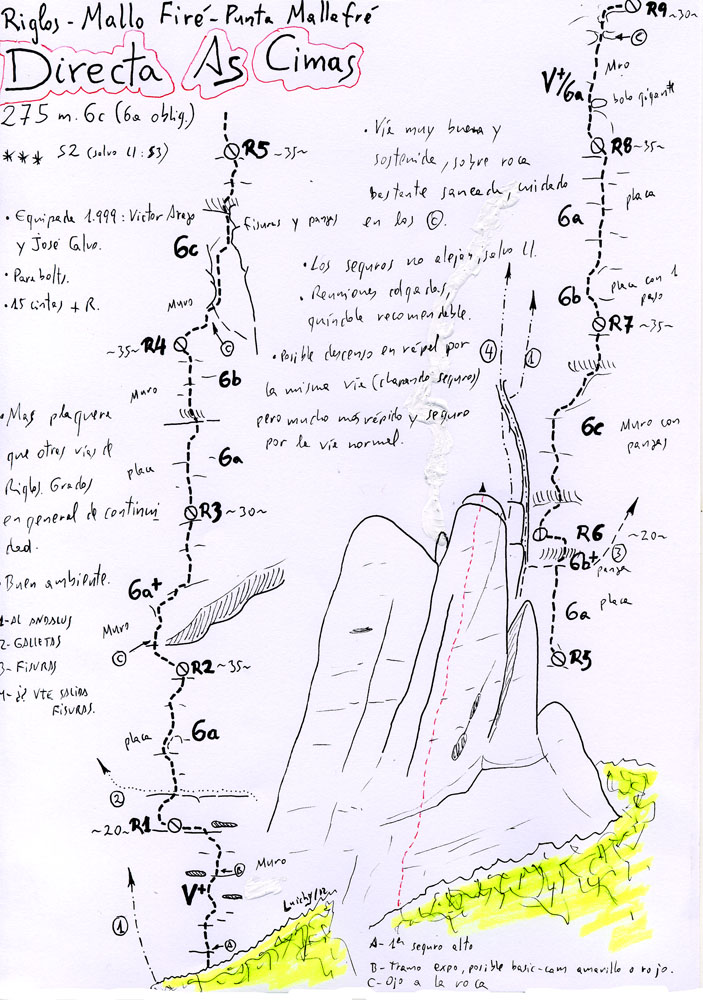 Riglos - Mallo Firé - Punta Mallafré
Directa As Cimas
275 m. 6c (6a oblig.)
*** S2 (salvo L1: S3)
• Equipada 1.999: Victor Arazo
y José Calvo.
• Parabolts.
• 15 cintas + R.
• Mas plaquera
que otras vias de
Riglos. Grados
en general de continui
dad.
• Buen ambiente.
1- AL ANDALUS
2- GALLETAS
3- FISURAS
4- ¿? VTE SALIDA
FISURAS.
• Vía muy buena y
sostenida, sobre roca
bastante saneada, cuidado
en los C.
• Los seguros no alejan, salvo L1.
• Reuniones colgadas,
guindola recomendable.
• Posible descenso en rápel por
la misma vía (chapando seguros)
pero mucho más rápido y seguro
por la vía normal.
R5 ~35~
fisuras y panzas
6c
Muro
C
~35~ R4
6b
Muro
6a
placa
R3 ~30~
6a+
Muro
C
R2 ~35~
placa
6a
2
~20~ R1
Muro
B
V+
1
A
R9 ~30~
C
Muro
V+/6a
bolo gigante
R8 ~35~
placa
6a
6b
placa con 1
paso
R7 ~35~
6c
Muro con
panzas
R6 ~20~
6b+
panza
3
6a
placa
R5
4
1
Luichy/12
A- 1er seguro alto
B- Tramo expo, posible basic-cam amarillo o rojo.
C- Ojo a la roca